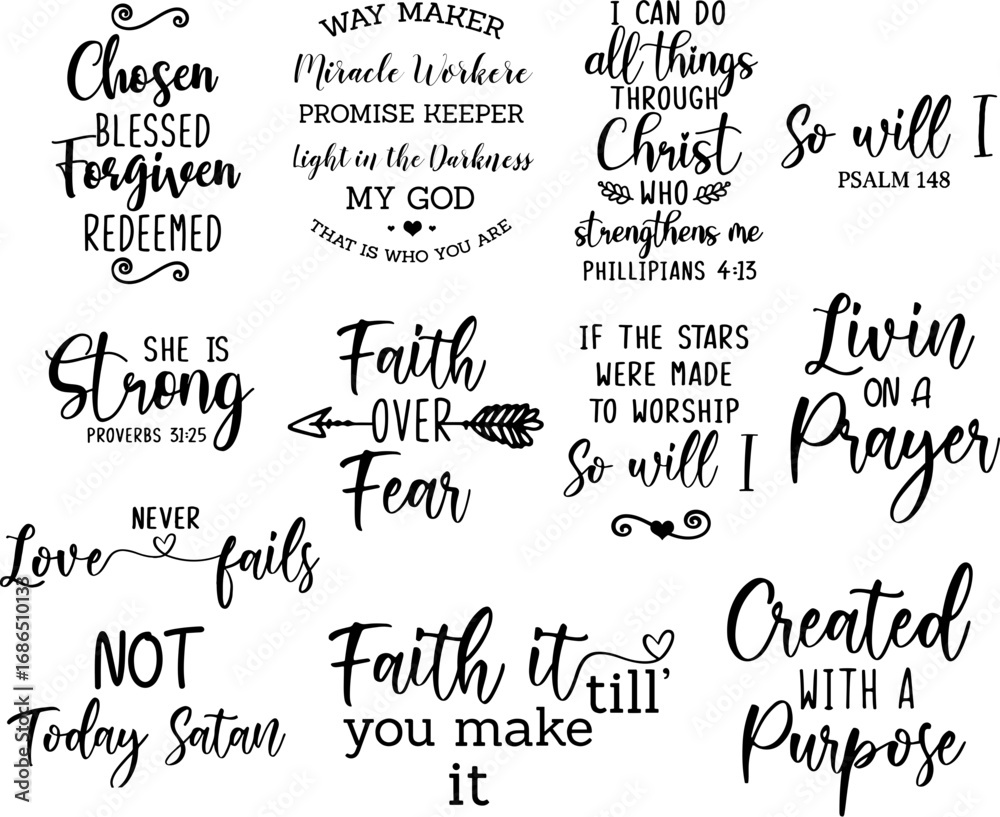 Chosen
BLESSED
Forgiven
REDEEMED
WAY MAKER
Miracle Workere
PROMISE KEEPER
Light in the Darkness
MY GOD
THAT IS WHO YOU ARE
I CAN DO
all things
THROUGH
Christ
WHO
strengthens me
PHILLIPIANS 4:13
So will I
PSALM 148
SHE IS
Strong
PROVERBS 31:25
Faith
OVER
Fear
IF THE STARS
WERE MADE
TO WORSHIP
So will I
Livin
ON A
Prayer
NEVER
Love fails
NOT
Today Satan
Faith it
till'
you make
it
Created
WITH A
Purpose
Adobe Stock | #1686510133